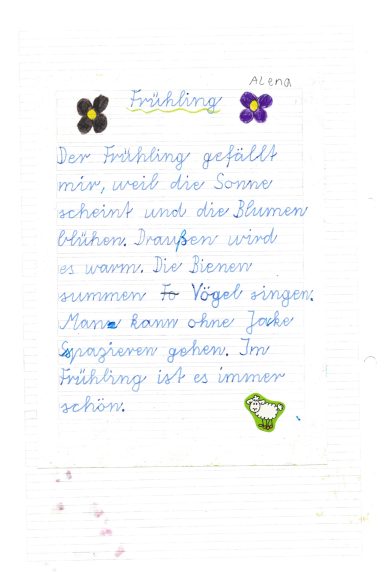 ALena
Frühling
Der Frühling gefällt
mir, weil die Sonne
scheint und die Blumen
blühen. Draußen wird
es warm. Die Bienen
summen Fo Vögel singen.
Man kann ohne Jacke
Spazieren gehen. Im
Frühling ist es immer
schön.